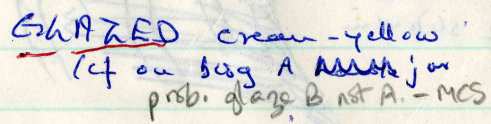 GLAZED cream-yellow
(cf on big A jar
prob. glaze B not A. - MCS